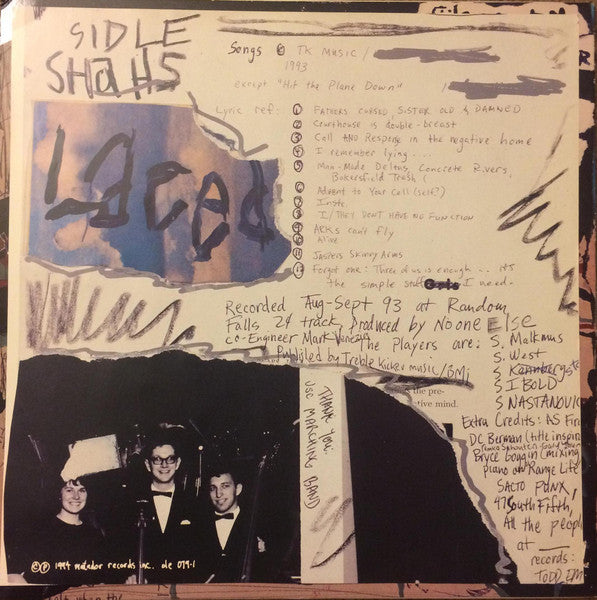 SIDLE
SHaHS
Laced
Songs © TK MUSIC /
1993
except "Hit the Plane Down" /
Lyric ref:
① FATHERS CURSED SISTER OLD & DAMNED
② Courthouse is double-breast
③ Call AND Response in the negative home
④ I remember lying....
⑤ Man-Made Deltas, Concrete Rivers,
Bakersfield Trash (
⑥ Advent to Your Cell (self?)
⑦ Instr.
⑧ I/THEY DON'T HAVE NO FUNCTION
⑨ ARKS can't fly
⑩ Alive
⑪ JASPERS SKINNY ARMS
⑫ Forgot one: Three of us is enough... NOT
the simple stuff I need.
Recorded Aug-Sept 93 at Random
Falls 24 track, produced by No one ELSE
co-Engineer Mark Venezia The Players are: S, Malkmus
S. West
S Kannberg
S IBOLD
S NASTANOVICH
& Published by Treble Kicker music/BMi
the pre-
-tive mind.
THANK YOU:
USC MARCHING BAND
Extra Credits: AS Fire
DC Berman (title inspir
Bryce Goggin (mixing
piano on Range Life
SACTO PUNX,
47 South Fifth,
All the peopl
at
records:
TODD, EM
©℗ 1994 matador records inc. ole 079-1